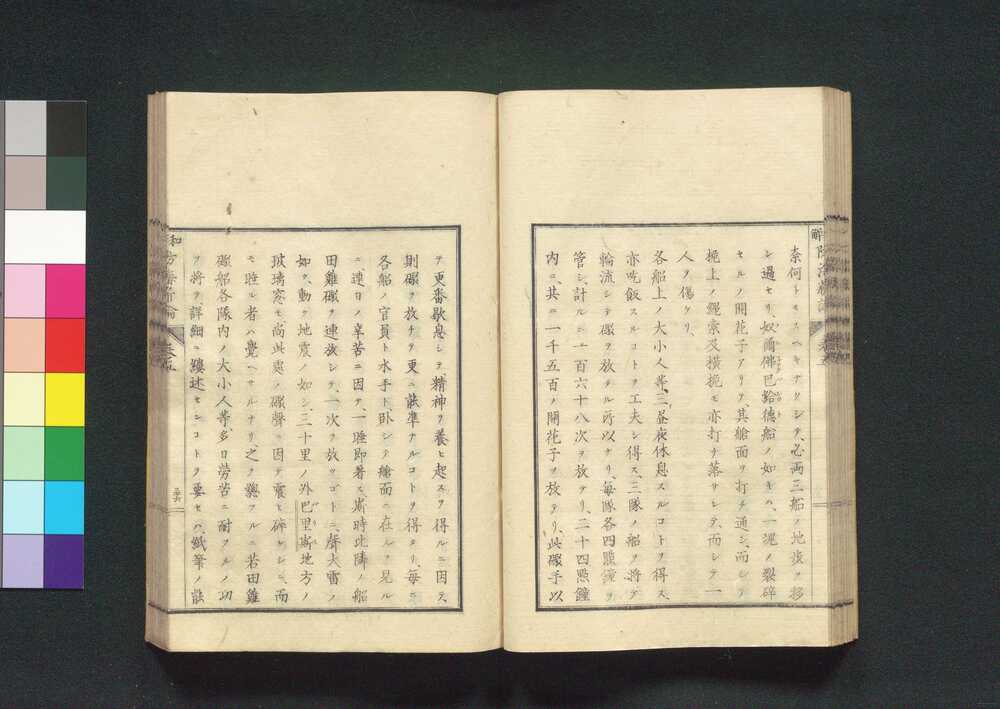 奈何トモスヘキナクシテ、必両三船ノ地歩ヲ移
シ過セリ、奴爾佛巴鉛德船ノ如キハ、一滉ノ裂碎
セルノ開花子アリテ、其艙面ヲ打チ通シ、而シテ
桅上ノ繩索及横桅モ亦打チ落サシテ、而シテ一
人ヲ傷ケリ、
各船上ノ大小人等、三昼夜休息スルコトヲ得ス、
亦吃飯スルコトヲ工夫シ得ス、三隊ノ船ヲ将テ
輪流シテ礮ヲ放タル所以ナリ、毎隊各四㸃鐘ヲ
管シ、計ルニ一百六十八次ヲ放テリ、二十四㸃鐘
内ニ、其ニ一千五百ノ開花子ヲ放テリ、此礮手以
テ更番歇息シテ、精神ヲ養ヒ起スヲ得ルニ因テ、
則礮ヲ放チテ更ニ能準ナルコトヲ得タリ、毎ニ
各船ノ官員ト水手ト、臥シテ艙面ニ在ルヲ見ル
ニ、連日ノ辛苦ニ因テ、一睡即著ス、斯時比隣ノ船
田雞礮ヲ連放シテ、一次ヲ放ツゴトニ、聲大雷ノ
如ク、動ク地震ノ如シ、三十里ノ外巴里斯地方ノ
玻璃窓モ尚此處ノ礮聲ニ因テ震ヒ碎ケシニ、而
モ睡レ者ハ覺ヘサルナリ、之ヲ總フルニ若田雞
礮船各隊内ノ大小人等、多日勞苦ニ耐フルノ功
ヲ将テ、詳細ニ縷述センコトヲ要セハ、紙筆ノ能